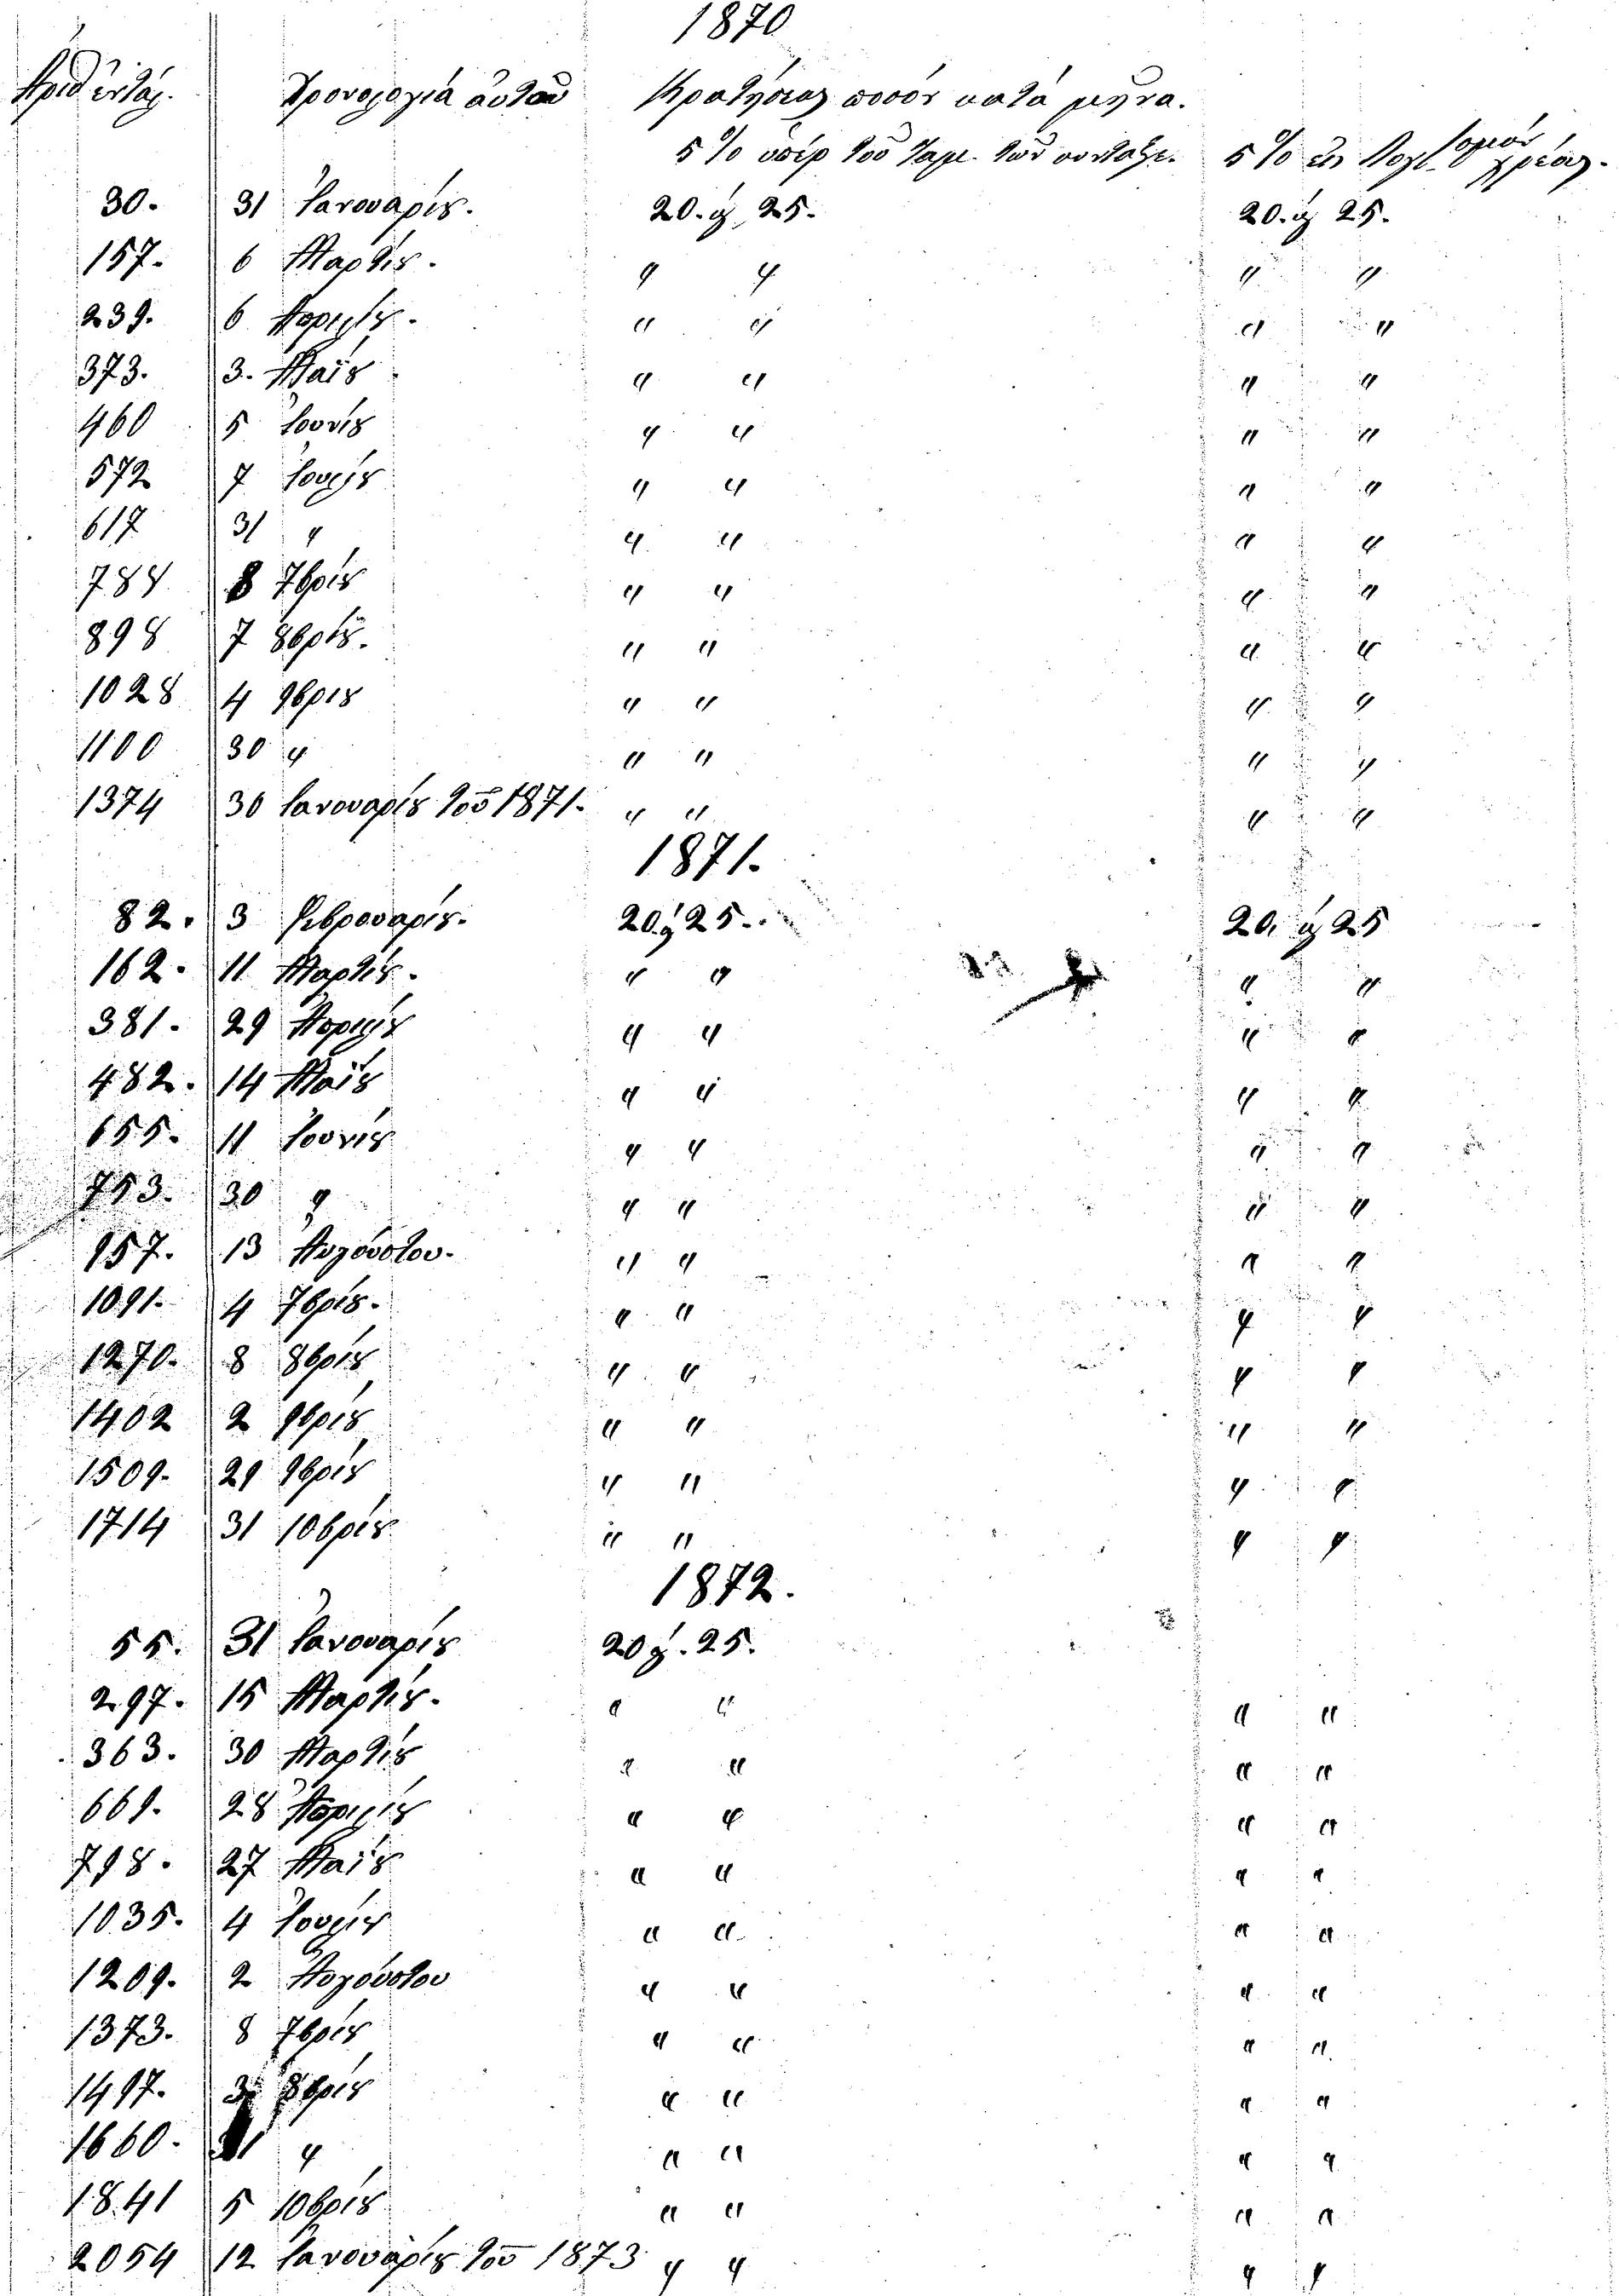 1870
Αριθ ενταλ. Χρονολογία αυτού Κρατήσεως ποσόν κατά μήνα.
5 % υπέρ του Ταμ. των συντάξε. 5 %
30. 31 Ιανουαρίου. 20. ϗ 25. 20. ϗ 25.
157. 6 Μαρτίου. " " " "
239. 6 Απριλίου. " " " "
373. 3. Μαΐου " " " "
460 5 Ιουνίου " " " "
572 7 Ιουλίου " " " "
617 31 " " " " "
784 8 7βρίου " " " "
898 7 8βρίου. " " " "
1028 4 9βρίου " " " "
1100 30 " " " " "
1374 30 Ιανουαρίου του 1871. " " " "
1871.
82. 3 Φεβρουαρίου. 20. ϗ 25. 20. ϗ 25
162. 11 Μαρτίου. " " " "
381. 29 Απριλίου " " " "
482. 14 Μαΐου " " " "
655. 11 Ιουνίου " " " "
753. 30 " " " " "
957. 13 Αυγούστου. " " " "
1091. 4 7βρίου. " " " "
1270. 8 8βρίου " " " "
1402 2 9βρίου " " " "
1509. 29 9βρίου " " " "
1714 31 10βρίου " " " "
1872.
55. 31 Ιανουαρίου 20 ϗ. 25.
297. 15 Μαρτίου. " " " "
363. 30 Μαρτίου " " " "
669. 28 Απριλίου " " " "
798. 27 Μαΐου " " " "
1035. 4 Ιουλίου " " " "
1209. 2 Αυγούστου " " " "
1373. 8 7βρίου " " " "
1497. 8βρίου " " " "
1660. 31 " " " " "
1841 5 10βρίου " " " "
2054 12 Ιανουαρίου του 1873 " " " "